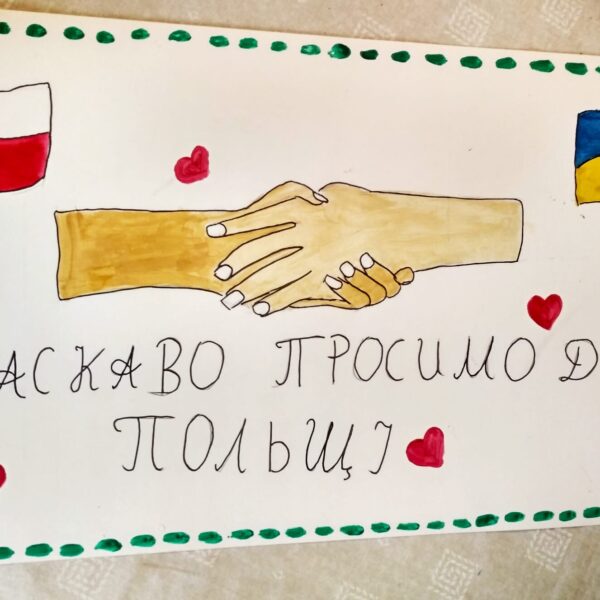 АСКАВО ПРОСИМО Д
ПОЛЬЩІ